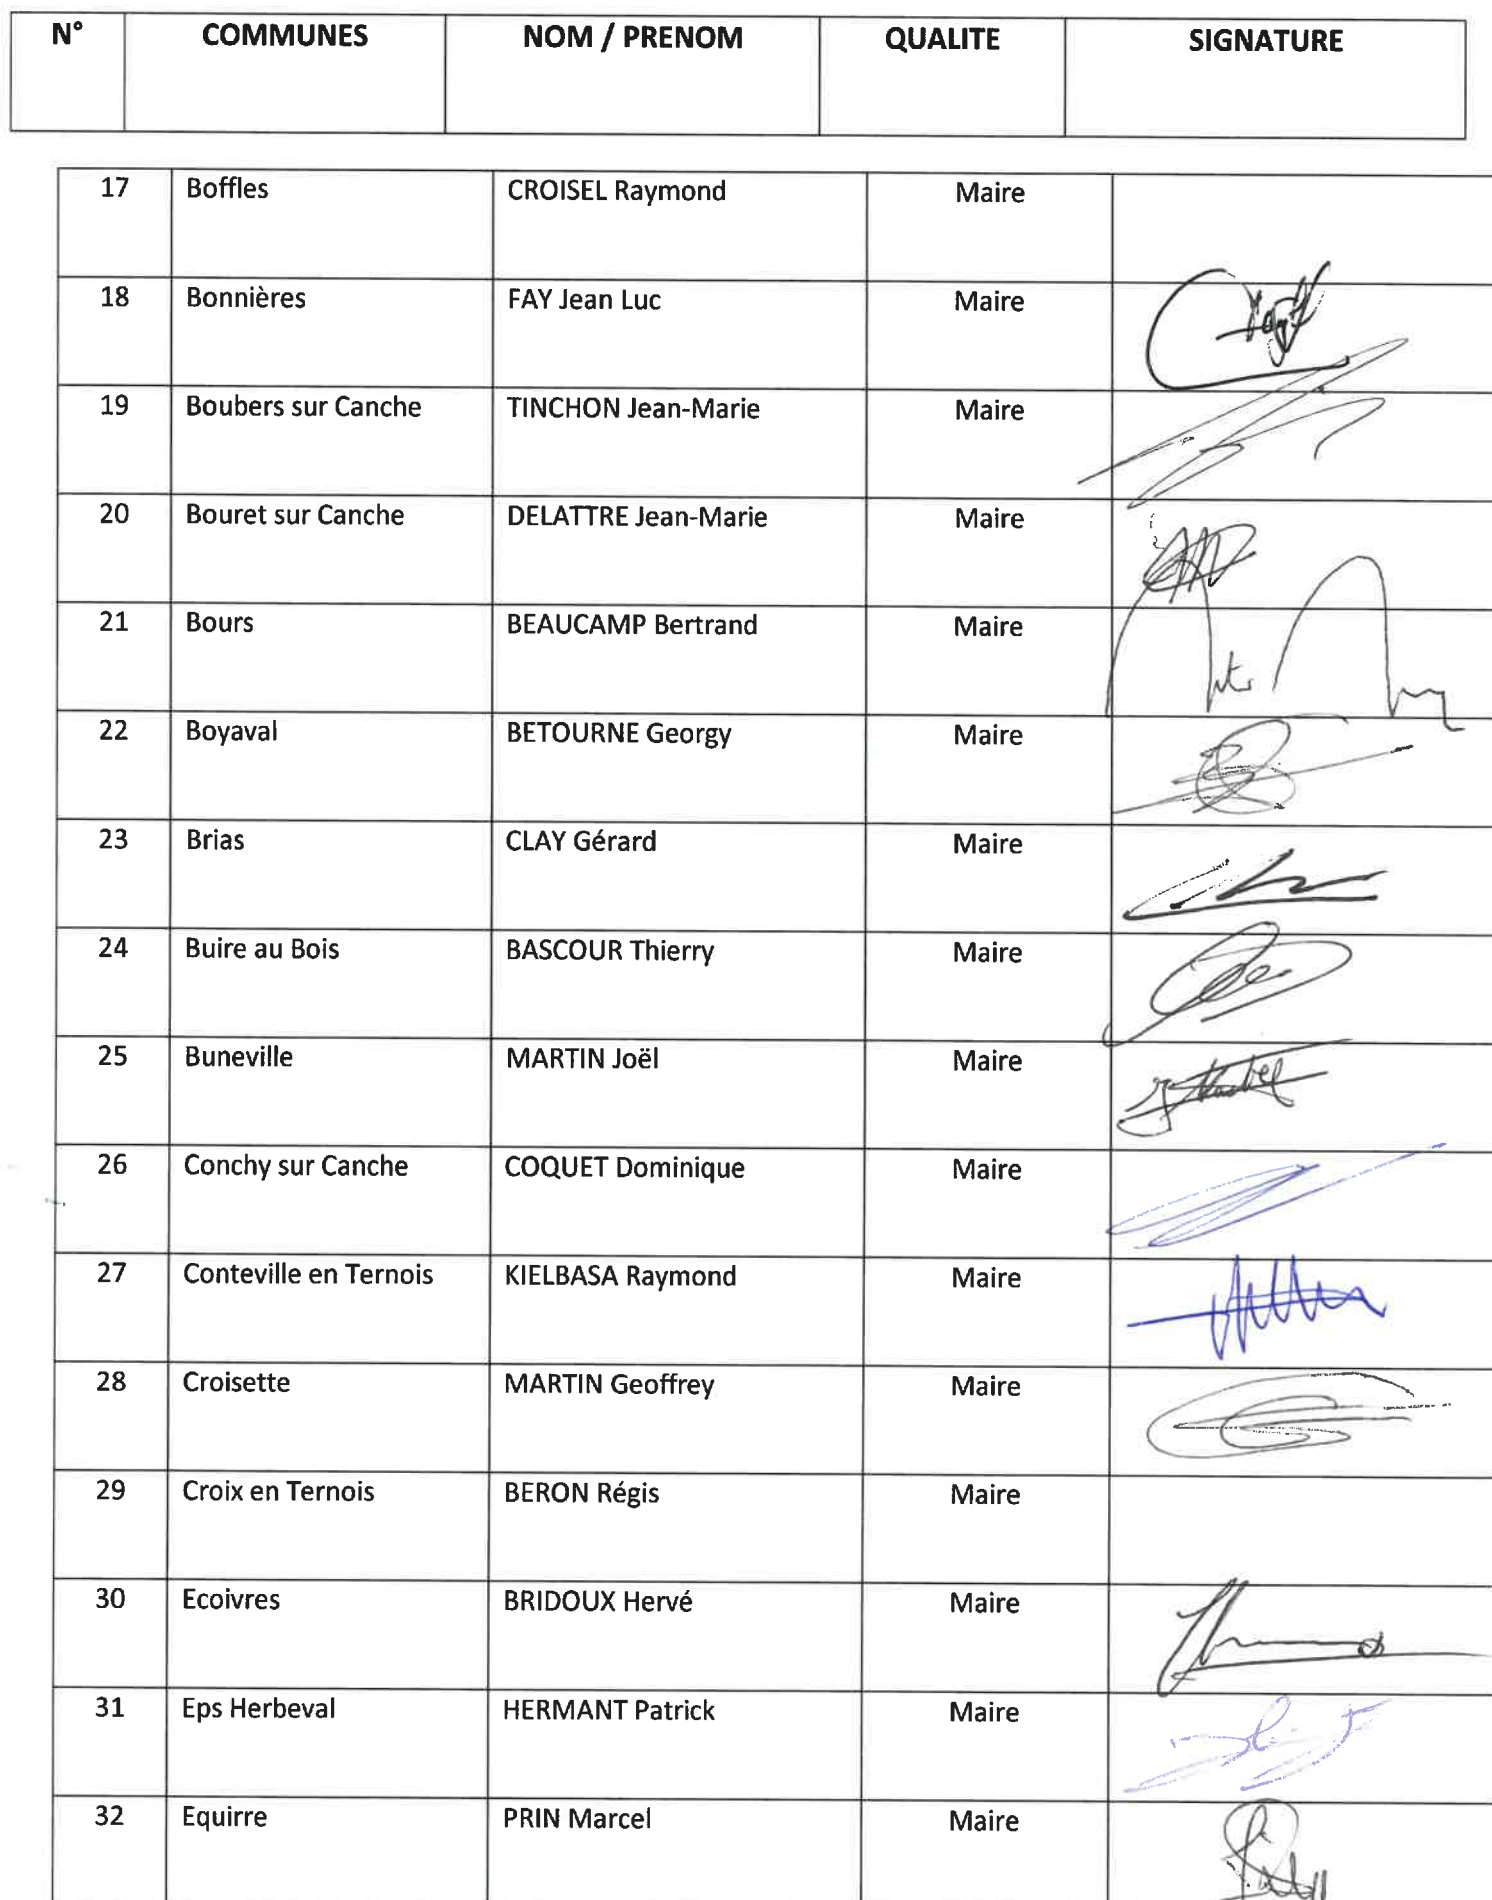 N° COMMUNES NOM / PRENOM QUALITE SIGNATURE
17 Boffles CROISEL Raymond Maire
18 Bonnières FAY Jean Luc Maire
19 Boubers sur Canche TINCHON Jean-Marie Maire
20 Bouret sur Canche DELATTRE Jean-Marie Maire
21 Bours BEAUCAMP Bertrand Maire
22 Boyaval BETOURNE Georgy Maire
23 Brias CLAY Gérard Maire
24 Buire au Bois BASCOUR Thierry Maire
25 Buneville MARTIN Joël Maire
26 Conchy sur Canche COQUET Dominique Maire
27 Conteville en Ternois KIELBASA Raymond Maire
28 Croisette MARTIN Geoffrey Maire
29 Croix en Ternois BERON Régis Maire
30 Ecoivres BRIDOUX Hervé Maire
31 Eps Herbeval HERMANT Patrick Maire
32 Equirre PRIN Marcel Maire